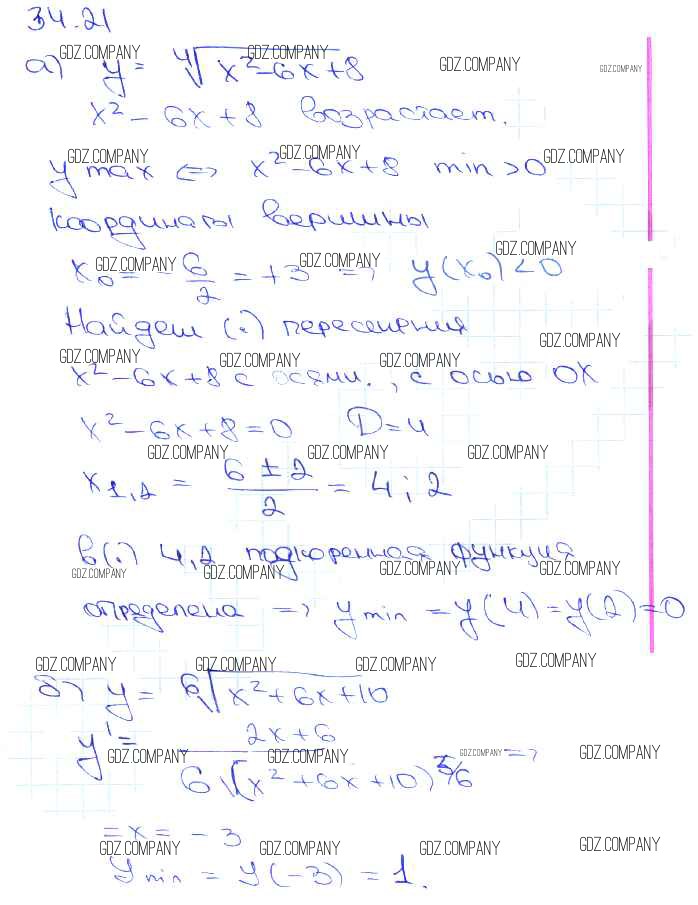 34.21
GDZ.COMPANY GDZ.COMPANY GDZ.COMPANY GDZ.COMPANY
а) y = ⁴√x²-6x+8
x² - 6x + 8 возрастает.
GDZ.COMPANY GDZ.COMPANY GDZ.COMPANY
y max <=> x²-6x+8 min >0
координаты вершины
GDZ.COMPANY GDZ.COMPANY GDZ.COMPANY
x₀ = - 6/2 = +3 => y(x₀) < 0
Найдем (.) пересечения
GDZ.COMPANY GDZ.COMPANY GDZ.COMPANY GDZ.COMPANY
x²-6x+8 с осями., с осью OX
x²-6x+8=0 D=4
GDZ.COMPANY GDZ.COMPANY GDZ.COMPANY
x₁,₂ = (6 ± 2)/2 = 4; 2
в (.) 4,2 подкоренная функция
GDZ.COMPANY GDZ.COMPANY GDZ.COMPANY GDZ.COMPANY
определена => y min = y(4) = y(2) = 0
GDZ.COMPANY GDZ.COMPANY GDZ.COMPANY GDZ.COMPANY
б) y = ⁶√x²+6x+10
y' = (2x+6)/(6√(x²+6x+10)^5/6) =>
GDZ.COMPANY GDZ.COMPANY GDZ.COMPANY GDZ.COMPANY
= x = - 3
GDZ.COMPANY GDZ.COMPANY GDZ.COMPANY GDZ.COMPANY
y min = y(-3) = 1.